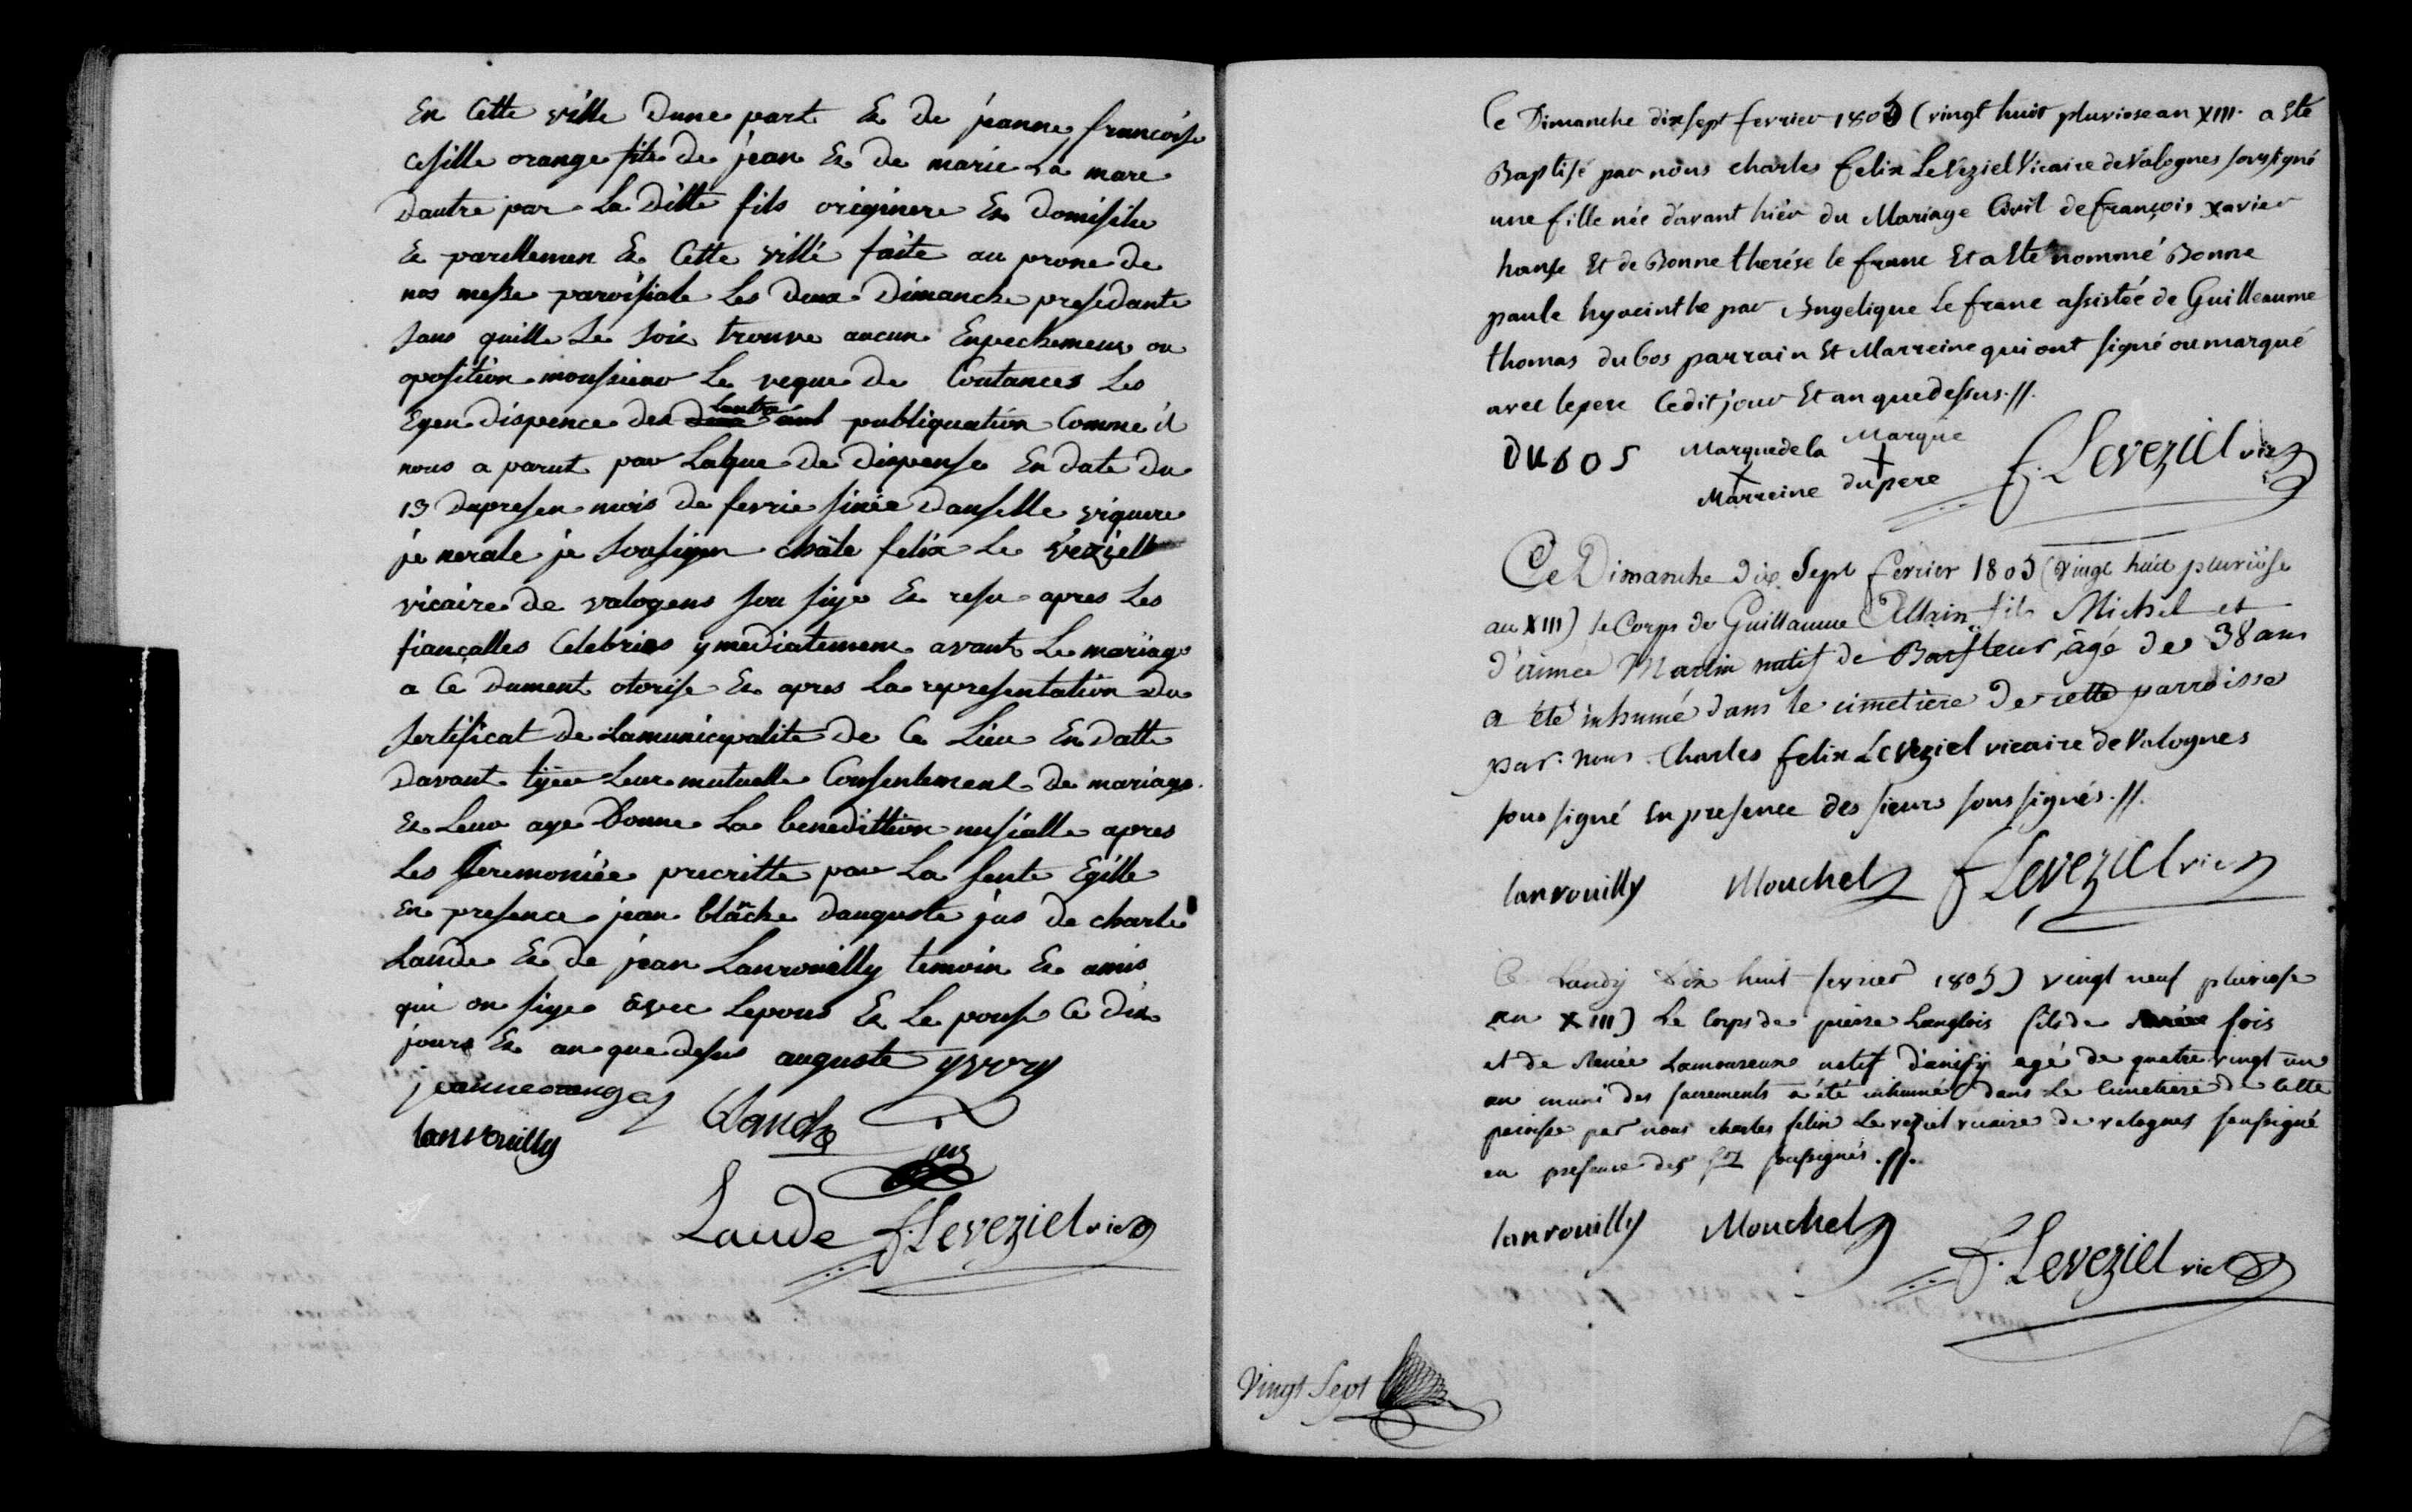 En Cette ville dune part Et de jeanne francoise
cesille orange file de jean Et de marie La mare
dautre par La ditte fils originere Et domisilie
Et parellemen Et Cette ville faite au prone de
nos messe paroisiale Les deux dimanche presedante
sans quille Se soie trouve aucune Enpechemens ou
oposition monsieur Le veque de Coutances Les
Eyen dispence des lautre publiquation Comme il
nous a parut par Laque de dispense En date du
13 dupresen mois de fevrie sinée dans elle viquere
je nerale je sousigne chale felix Le veziell
vicaire de valogens sou siye Et resu apres Les
fiançalles Celebries ymediatement avant Le mariage
a Ce dument otorise Et apres La representation du
sertificat de Lamunicypalite de Ce Lieu En datte
davant tyer Leur mutuelle Consentement de mariage
Et Leur aye Donne La benedittion nusialle apres
Les seremoniée precritte par La sente Egille
En presence jean blâche dauguste jus de charle
Laude Et de jean Lanrouilly temoin Et amis
qui on siye avec Lepous Et Le pouse Ce dis
jours Et an que desus auguste yvory
jeanneorange
Lanrouilly
jus
Laude f. Leveziel vic
Ce Dimanche dix sept fevrier 1805 (vingt huit pluviose an XIII. a Eté
Baptisé par nous charles felix Le Veziel Vicaire de Valognes soussigné
une fille née d'avant hiér du Mariage Civil de françois xavier
hanse Et de Bonne therése le franc Et a Eté nommé Bonne
paule hyacinthe par Angelique Le franc assistée de Guilleaume
thomas dubos parrain Et Marreine qui ont signé ou marqué
avec le pere Cedit jour Et an que dessus.//.
DUBOS Marque de la Marreine Marque du pere f. Leveziel vic
Ce Dimanche dix Sept fevrier 1805 (vingt huit pluviôse
an XIII) le Corps de Guillaume Allain fils Michel et
d'aimée Martin natif de Barfleur, âgé de 38 ans
a été inhumé dans le cimetière de cette parroisse
par nous Charles felix Le Veziel vicaire de Valognes
sous signé En presence des sieurs sous signés.//.
lanrouilly Mouchel f Leveziel vic
Ce Lundy dix huit fevrier 1805) vingt neuf pluviose
an XIII) Le Corps de pierre Langlois fils de fois
et de renée Lamoureux natif d'anisy agé de quatre vingt un
an muni des sacrements a été inhumé dans Le Cimetiere de Cette
paroisse par nous charles felix Le veziel vicaire de valognes soussigné
en presence des srs soussignés.//.
lanrouilly Mouchel
f. Leveziel vic
Vingt Sept